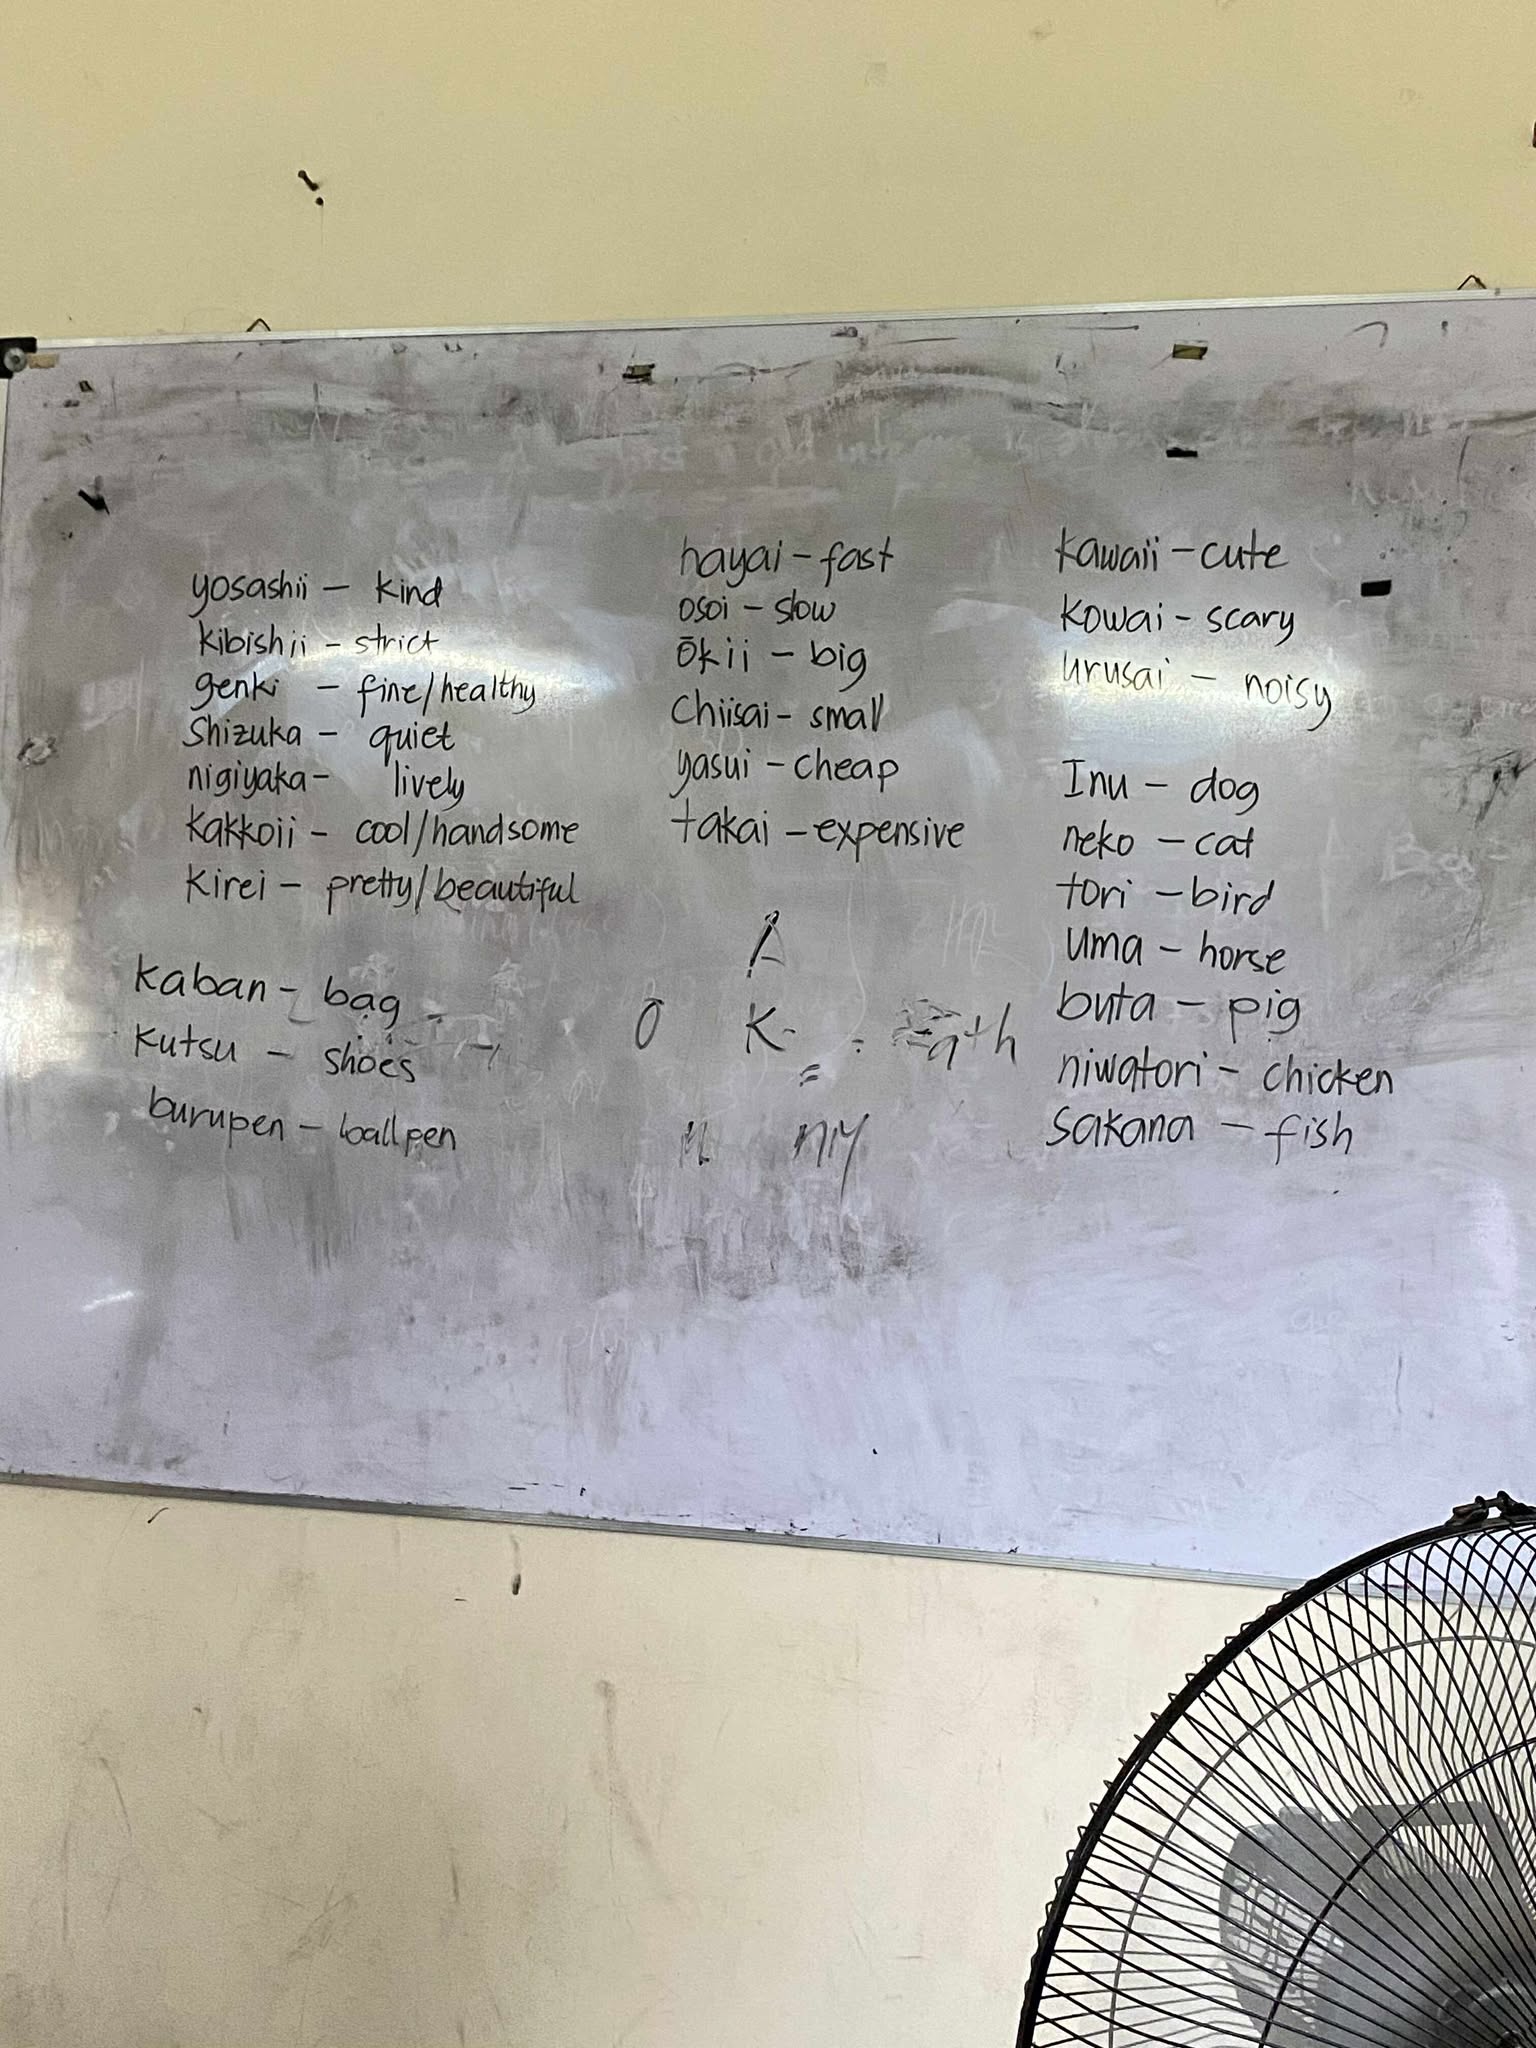 yosashii – kind
kibishii – strict
genki – fine/healthy
Shizuka – quiet
nigiyaka – lively
kakkoii – cool/handsome
kirei – pretty/beautiful
kaban – bag
kutsu – shoes
burupen – ballpen
hayai – fast
osoi – slow
ōkii – big
Chiisai – small
yasui – cheap
takai – expensive
kawaii – cute
kowai – scary
urusai – noisy
Inu – dog
neko – cat
tori – bird
uma – horse
buta – pig
niwatori – chicken
sakana – fish